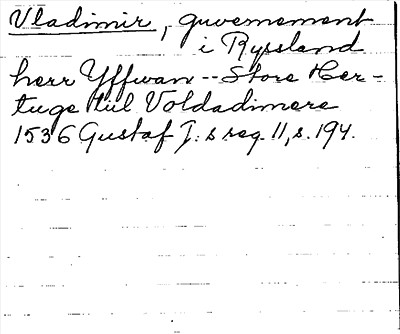 Vladimir, guvernement
i Ryssland
herr Yffwan -- Store Her-
tuge till Voldadimere
1536 Gustaf I:s reg. 11, s. 194.